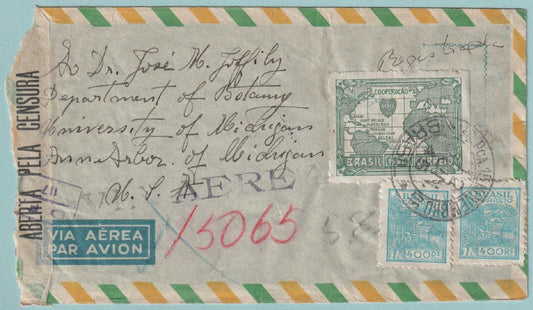 Ao Dr. José M. Joffily
Department of Botany
University of Michigan
Ann Arbor of Michigan
U. S. A.
Registrada
ABERTA PELA CENSURA
VIA AEREA
VIA AÉREA
PAR AVION
15065
COOPERAÇÃO
BRASIL CORREIO
BRASIL
CORREIO
400 RS
400 RS